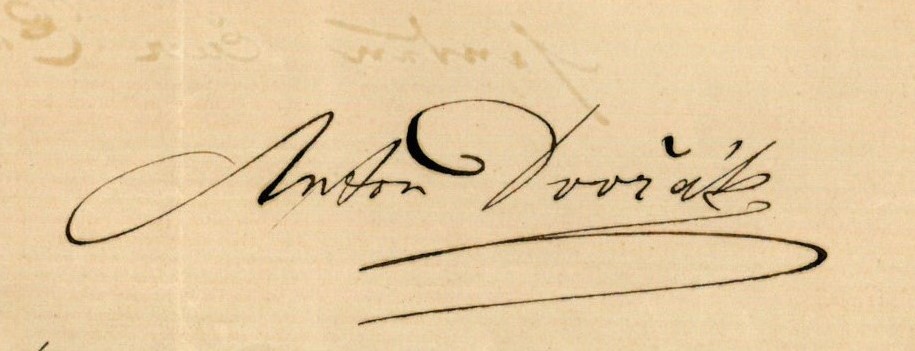 Anton Dvořák